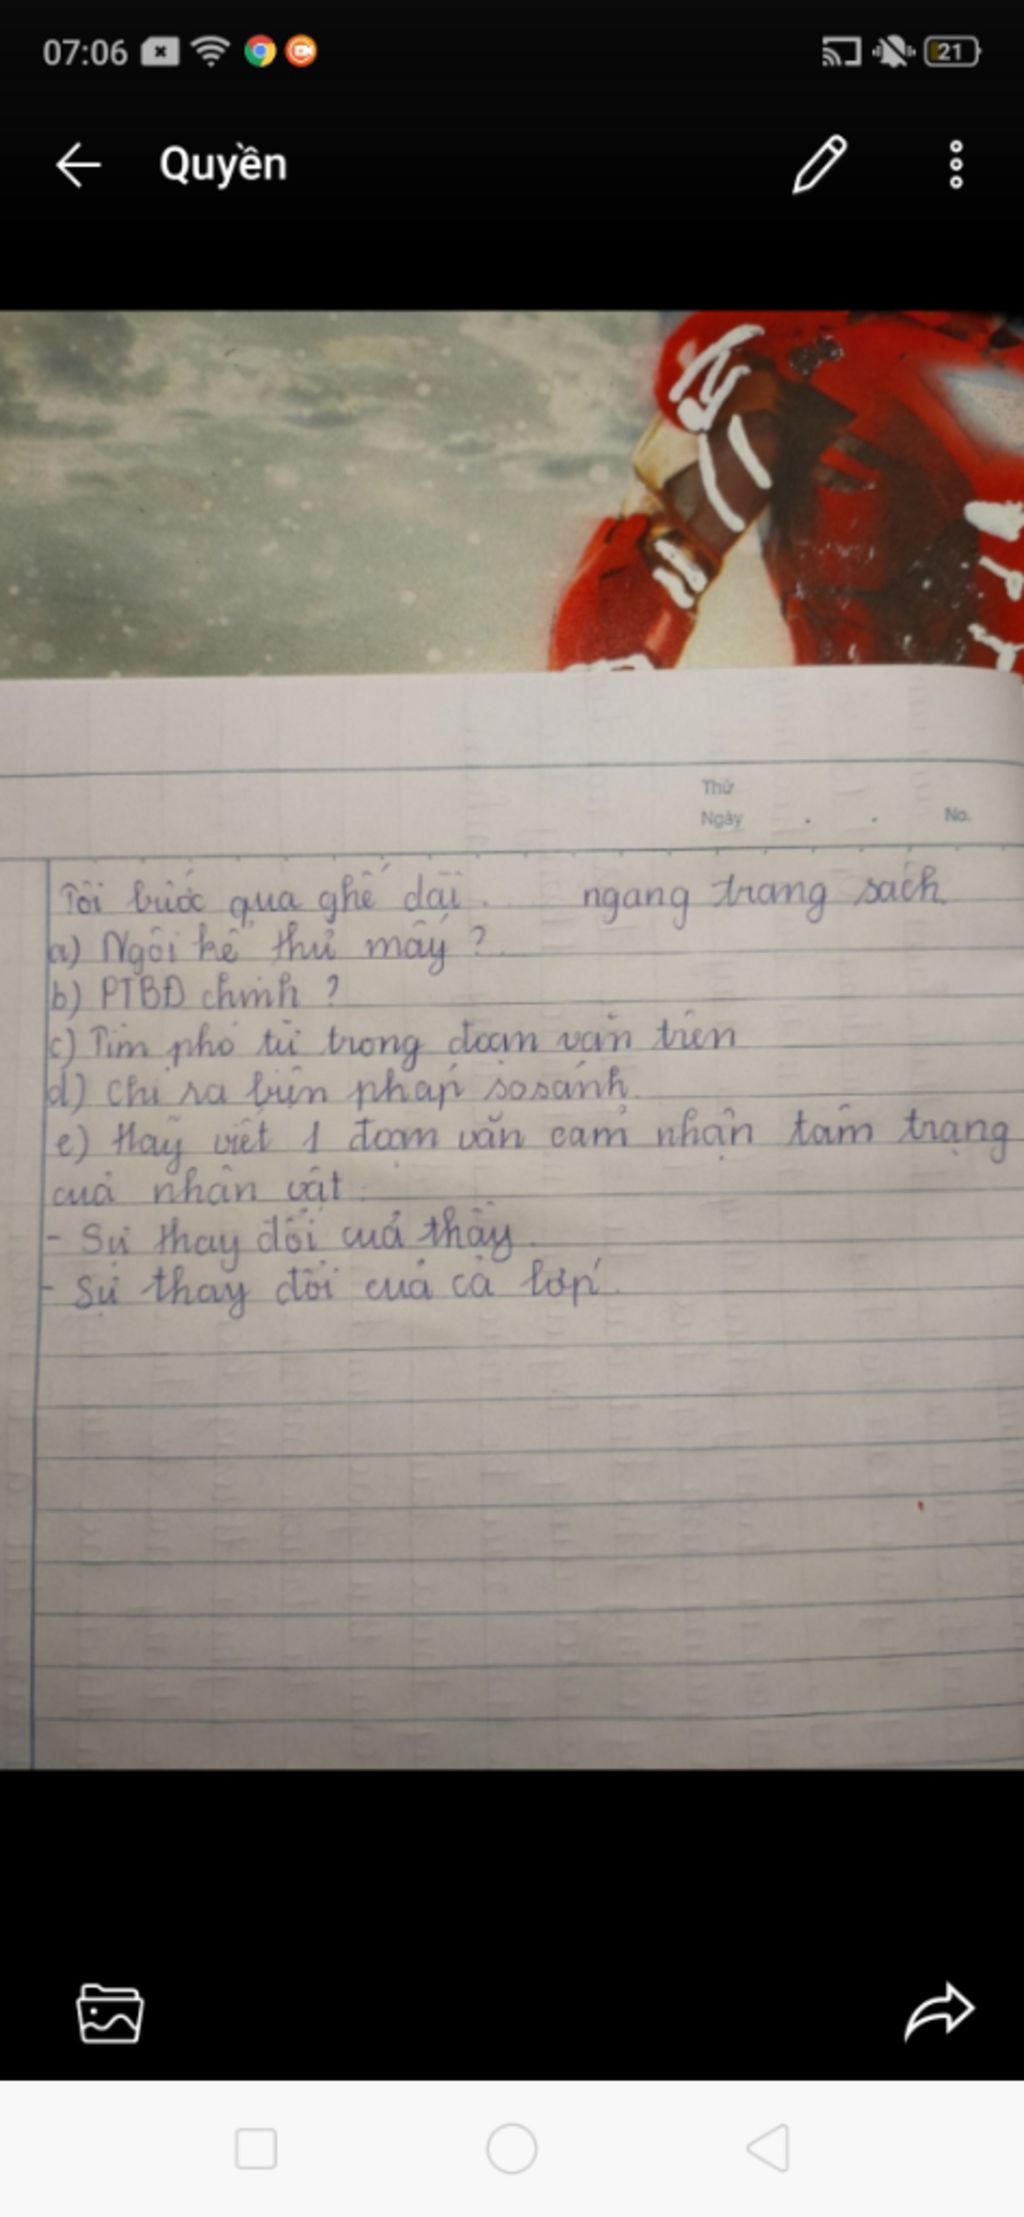 07:06
21
Quyền
Thứ
Ngày . . No.
Tôi bước qua ghế dài ... ngang trang sách
a) Ngôi kể thứ mấy ?
b) PTBĐ chính ?
c) Tìm phó từ trong đoạn văn trên
d) Chỉ ra biện pháp so sánh.
e) Hãy viết 1 đoạn văn cảm nhận tâm trạng
của nhân vật :
- Sự thay đổi của thầy.
- Sự thay đổi của cả lớp.